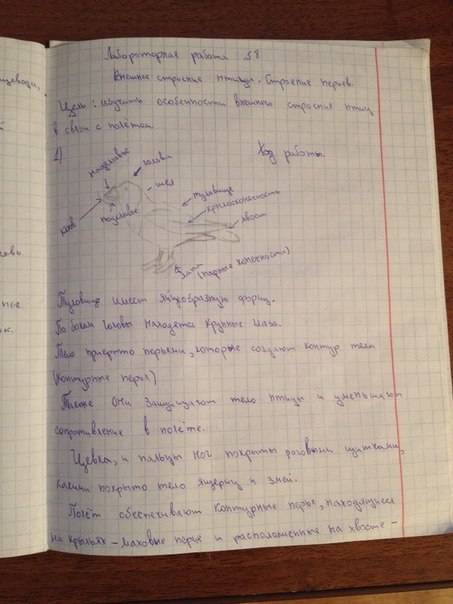 Лабораторная работа №8
Внешнее строение птицы. Строение перьев.
Цель: изучить особенности внешнего строения птиц
в связи с полётом.
Ход работы
1)
надклювье
голова
шея
туловище
крыло
хвост
клюв
подклювье
(парные конечности)
Туловище имеет яйцеобразную форму.
По бокам головы находятся крупные глаза.
Тело прикрыто перьями, которые создают контур тела
(контурные перья)
Также они защищают тело птицы и уменьшают
сопротивление в полёте.
Цевка, и пальцы ног покрыты роговыми щитками,
какими покрыто тело ящериц и змей.
Полёт обеспечивают контурные перья, находящиеся
на крыльях – маховые перья и расположенные на хвосте –